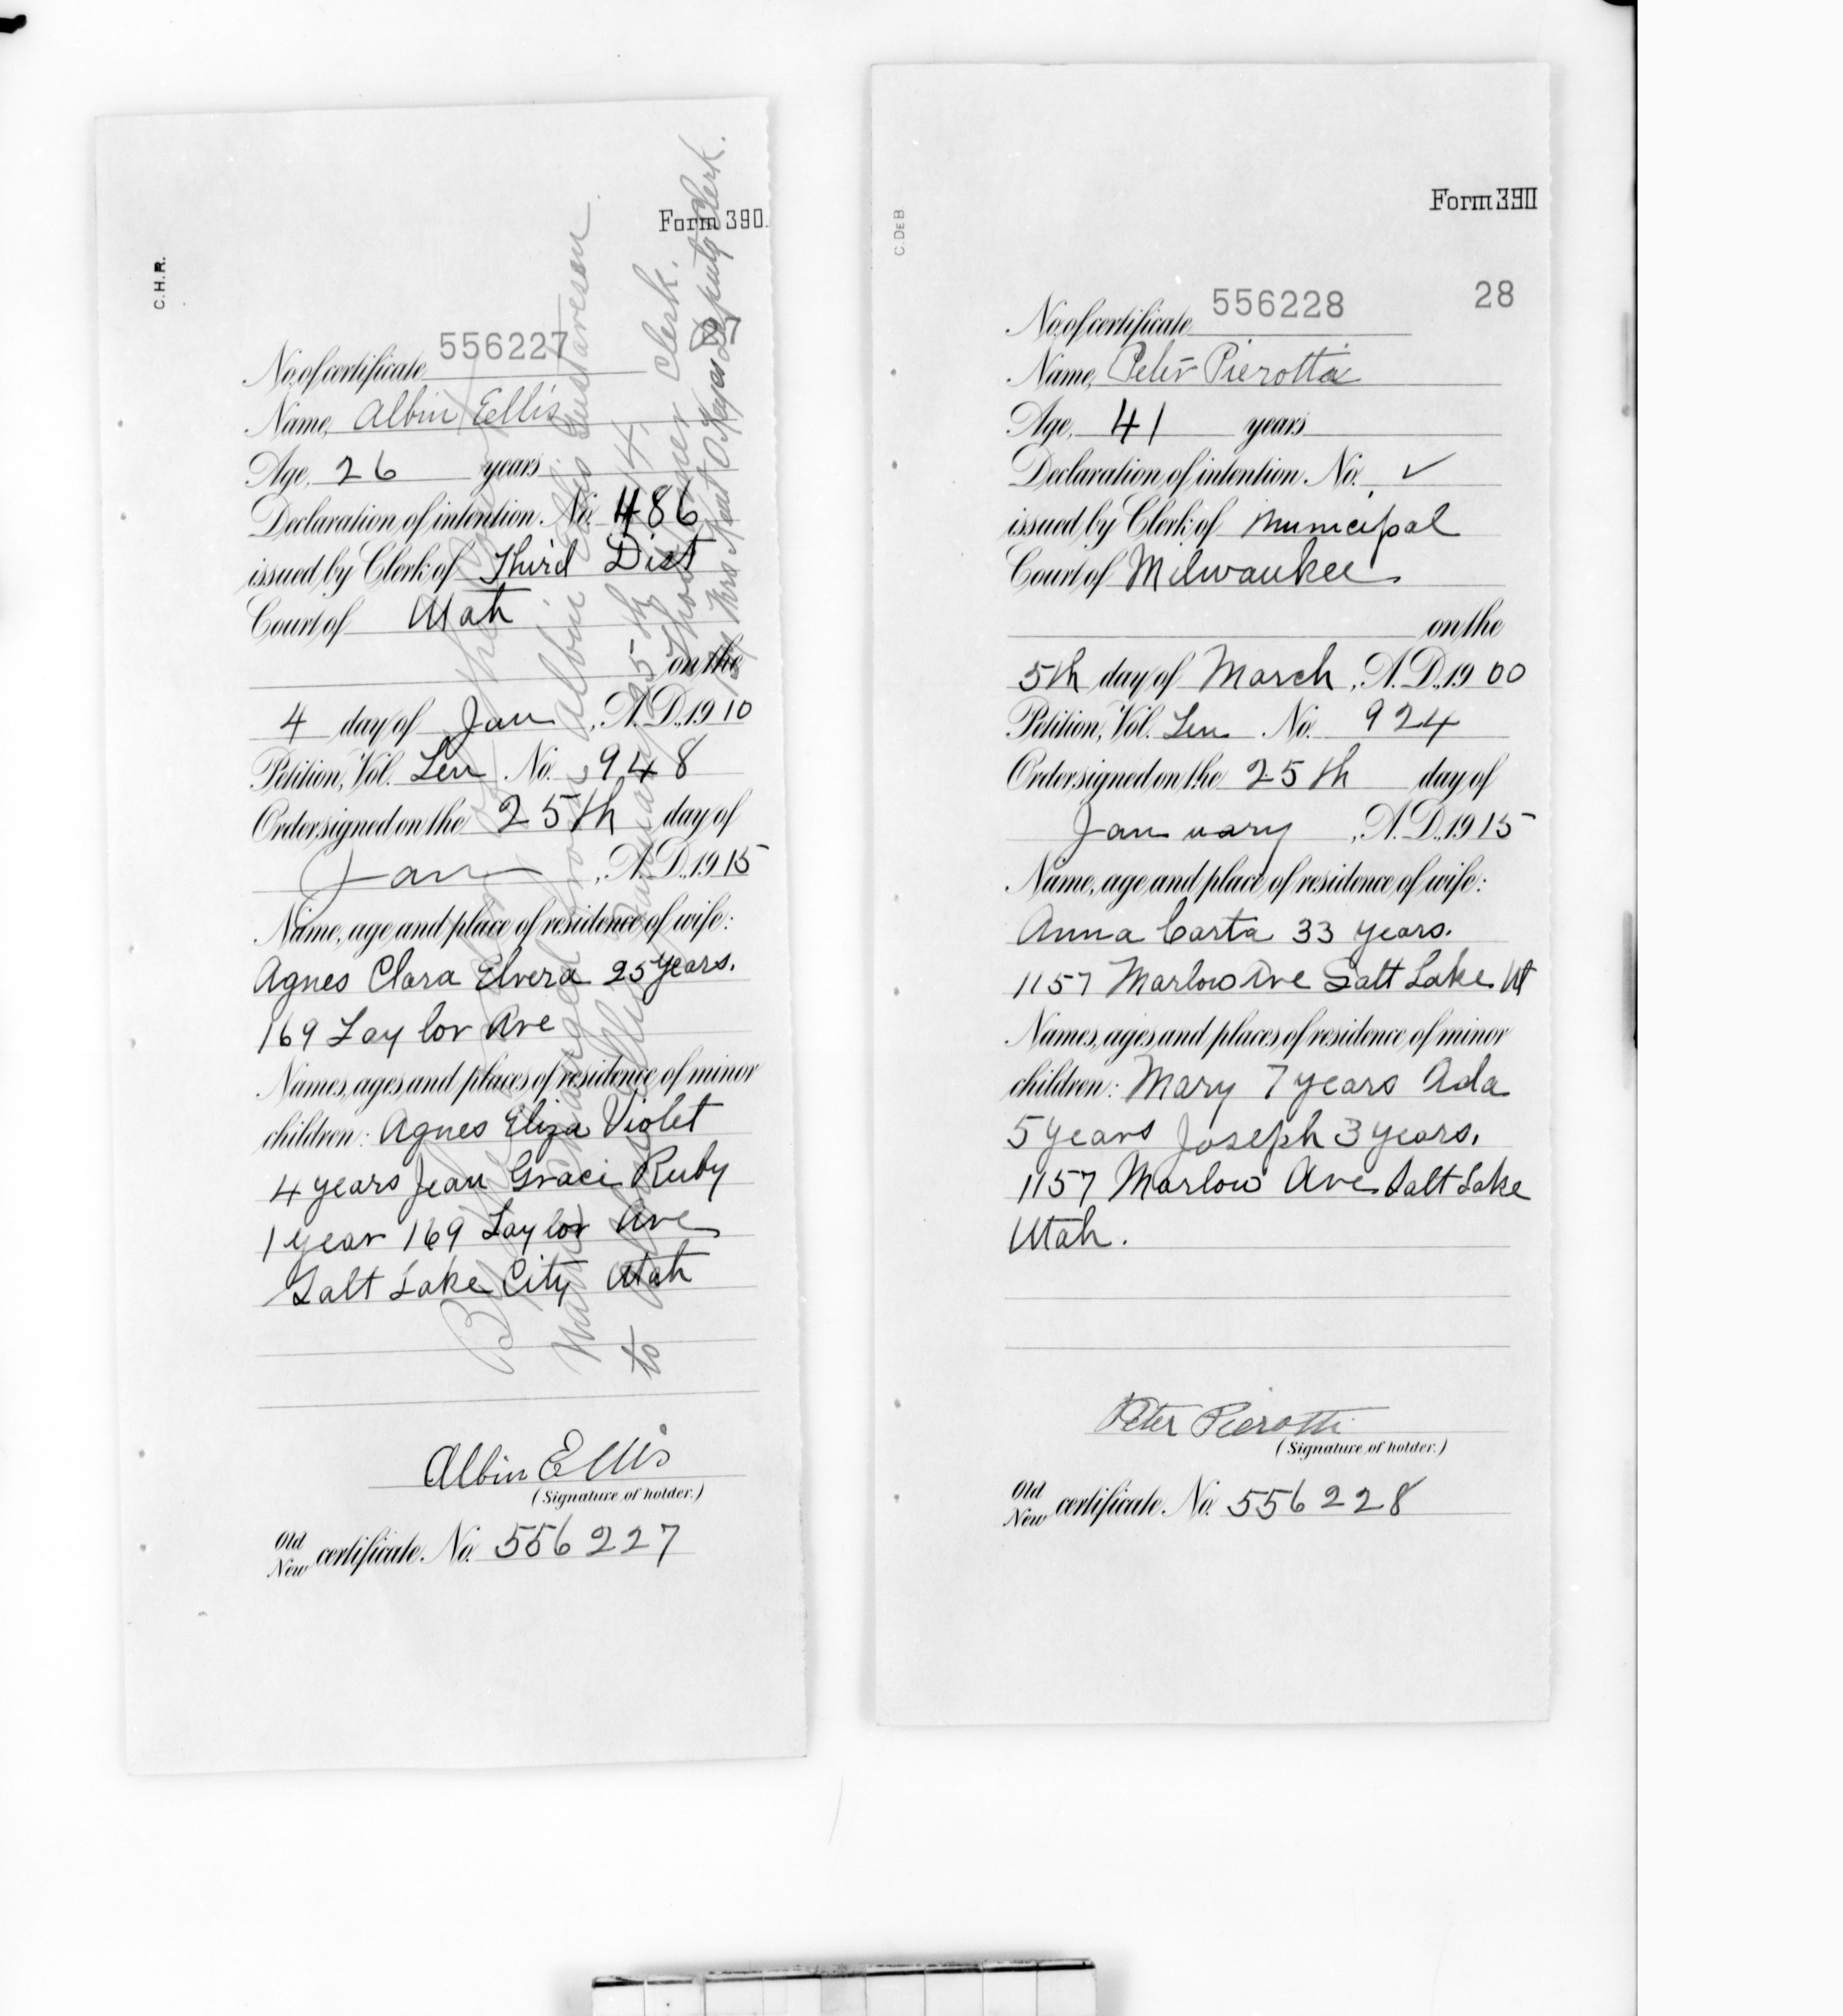 C.H.R.
Form 390.
No. of certificate 556227
Name, Albin Ellis
Age, 26 years
Declaration of intention No. 486
issued by Clerk of Third Dist
Court of Utah
on the
4 day of Jan, A.D. 1910
Petition, Vol. Ten No. 948
Order signed on the 25th day of
Jan, A.D. 1915
Name, age and place of residence of wife:
Agnes Clara Elvera 25 years.
169 Taylor Ave
Names, ages and places of residence of minor
children: Agnes Eliza Violet
4 years Jean Grace Ruby
1 year 169 Taylor Ave
Salt Lake City Utah
Albin Ellis
(Signature of holder.)
Old
New certificate No. 556227
name changed from Albin Ellis Gustavesen
to Albin Ellis January 25th
Clerk.
Deputy Clerk.
C. DEB
Form 390
28
No. of certificate 556228
Name, Peter Pierotti
Age, 41 years
Declaration of intention No. ✓
issued by Clerk of Municipal
Court of Milwaukee
on the
5th day of March, A.D. 1900
Petition, Vol. Ten No. 924
Order signed on the 25th day of
January, A.D. 1915
Name, age and place of residence of wife:
Anna Carta 33 years.
1157 Marlow Ave Salt Lake Ut
Names, ages and places of residence of minor
children: Mary 7 years Ada
5 years Joseph 3 years.
1157 Marlow Ave Salt Lake
Utah.
Peter Pierotti
(Signature of holder.)
Old
New certificate No. 556228